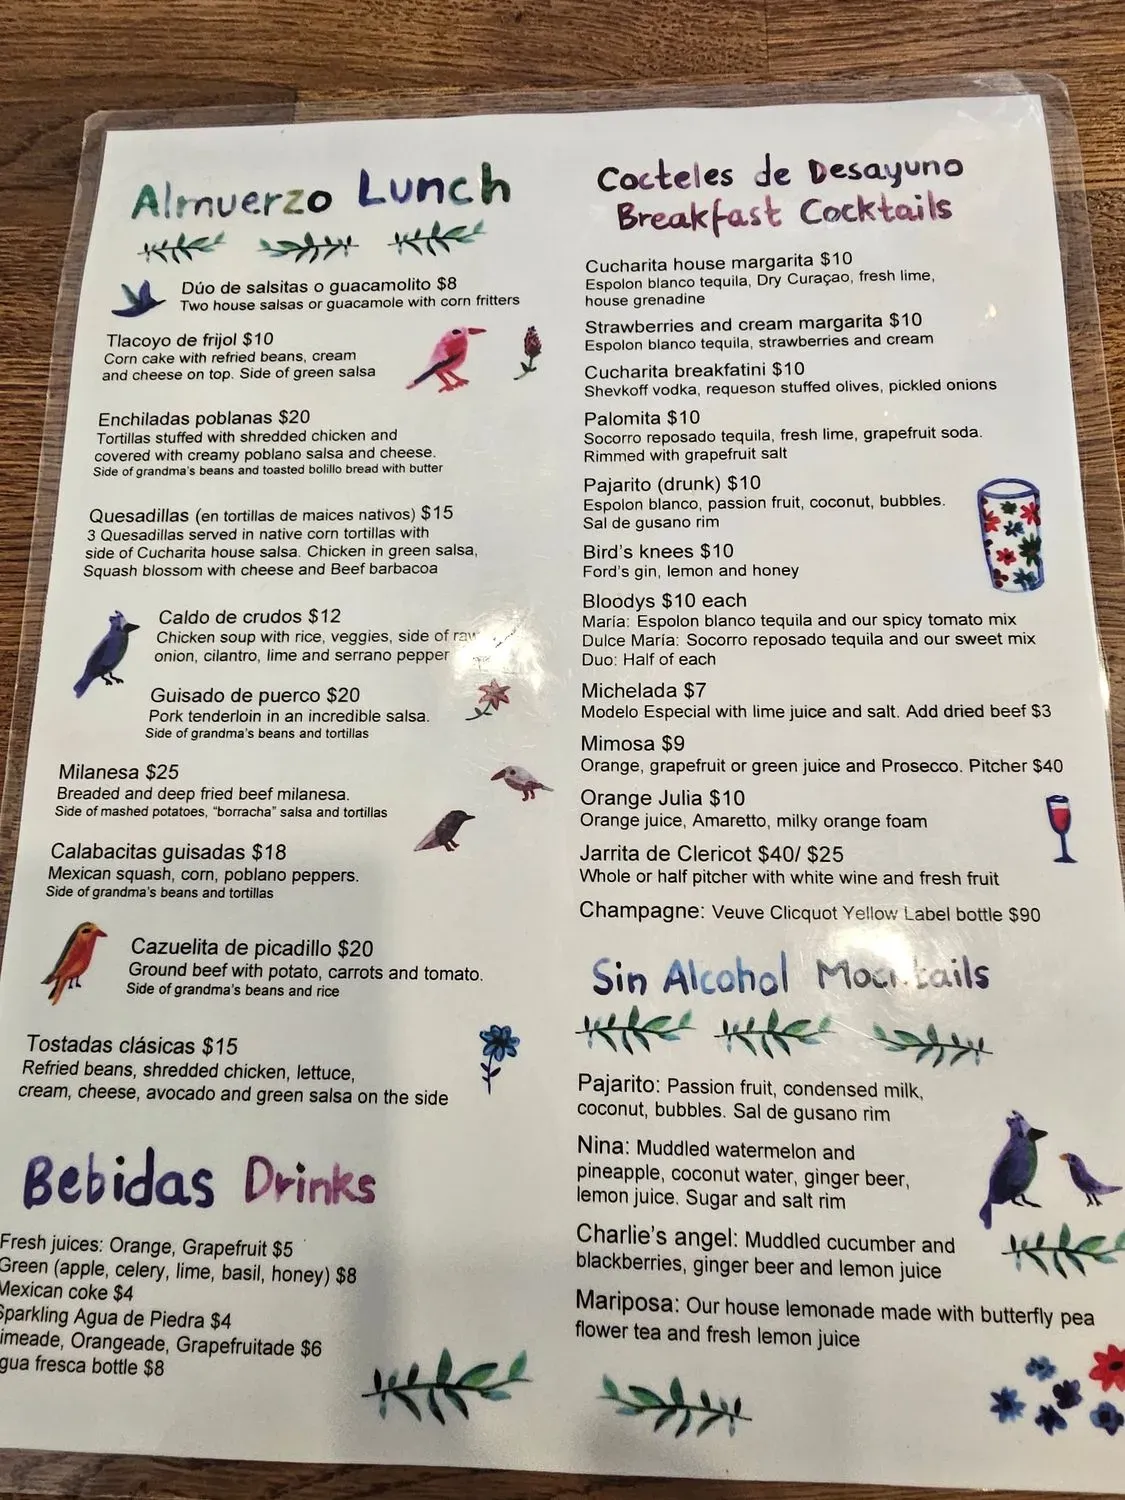 Almuerzo Lunch
Dúo de salsitas o guacamolito $8
Two house salsas or guacamole with corn fritters
Tlacoyo de frijol $10
Corn cake with refried beans, cream
and cheese on top. Side of green salsa
Enchiladas poblanas $20
Tortillas stuffed with shredded chicken and
covered with creamy poblano salsa and cheese.
Side of grandma's beans and toasted bolillo bread with butter
Quesadillas (en tortillas de maices nativos) $15
3 Quesadillas served in native corn tortillas with
side of Cucharita house salsa. Chicken in green salsa,
Squash blossom with cheese and Beef barbacoa
Caldo de crudos $12
Chicken soup with rice, veggies, side of raw
onion, cilantro, lime and serrano pepper
Guisado de puerco $20
Pork tenderloin in an incredible salsa.
Side of grandma's beans and tortillas
Milanesa $25
Breaded and deep fried beef milanesa.
Side of mashed potatoes, "borracha" salsa and tortillas
Calabacitas guisadas $18
Mexican squash, corn, poblano peppers.
Side of grandma's beans and tortillas
Cazuelita de picadillo $20
Ground beef with potato, carrots and tomato.
Side of grandma's beans and rice
Tostadas clásicas $15
Refried beans, shredded chicken, lettuce,
cream, cheese, avocado and green salsa on the side
Bebidas Drinks
Fresh juices: Orange, Grapefruit $5
Green (apple, celery, lime, basil, honey) $8
Mexican coke $4
Sparkling Agua de Piedra $4
imeade, Orangeade, Grapefruitade $6
gua fresca bottle $8
Cocteles de Desayuno
Breakfast Cocktails
Cucharita house margarita $10
Espolon blanco tequila, Dry Curaçao, fresh lime,
house grenadine
Strawberries and cream margarita $10
Espolon blanco tequila, strawberries and cream
Cucharita breakfatini $10
Shevkoff vodka, requeson stuffed olives, pickled onions
Palomita $10
Socorro reposado tequila, fresh lime, grapefruit soda.
Rimmed with grapefruit salt
Pajarito (drunk) $10
Espolon blanco, passion fruit, coconut, bubbles.
Sal de gusano rim
Bird's knees $10
Ford's gin, lemon and honey
Bloodys $10 each
María: Espolon blanco tequila and our spicy tomato mix
Dulce María: Socorro reposado tequila and our sweet mix
Duo: Half of each
Michelada $7
Modelo Especial with lime juice and salt. Add dried beef $3
Mimosa $9
Orange, grapefruit or green juice and Prosecco. Pitcher $40
Orange Julia $10
Orange juice, Amaretto, milky orange foam
Jarrita de Clericot $40/ $25
Whole or half pitcher with white wine and fresh fruit
Champagne: Veuve Clicquot Yellow Label bottle $90
Sin Alcohol Mocktails
Pajarito: Passion fruit, condensed milk,
coconut, bubbles. Sal de gusano rim
Nina: Muddled watermelon and
pineapple, coconut water, ginger beer,
lemon juice. Sugar and salt rim
Charlie's angel: Muddled cucumber and
blackberries, ginger beer and lemon juice
Mariposa: Our house lemonade made with butterfly pea
flower tea and fresh lemon juice